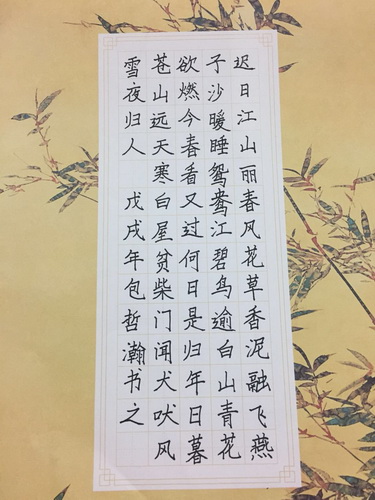 迟日江山丽春风花草香泥融飞燕
子沙暖睡鸳鸯江碧鸟逾白山青花
欲燃今春香又过何日是归年日暮
苍山远天寒白屋贫柴门闻犬吠风
雪夜归人 戊戌年包哲瀚书之